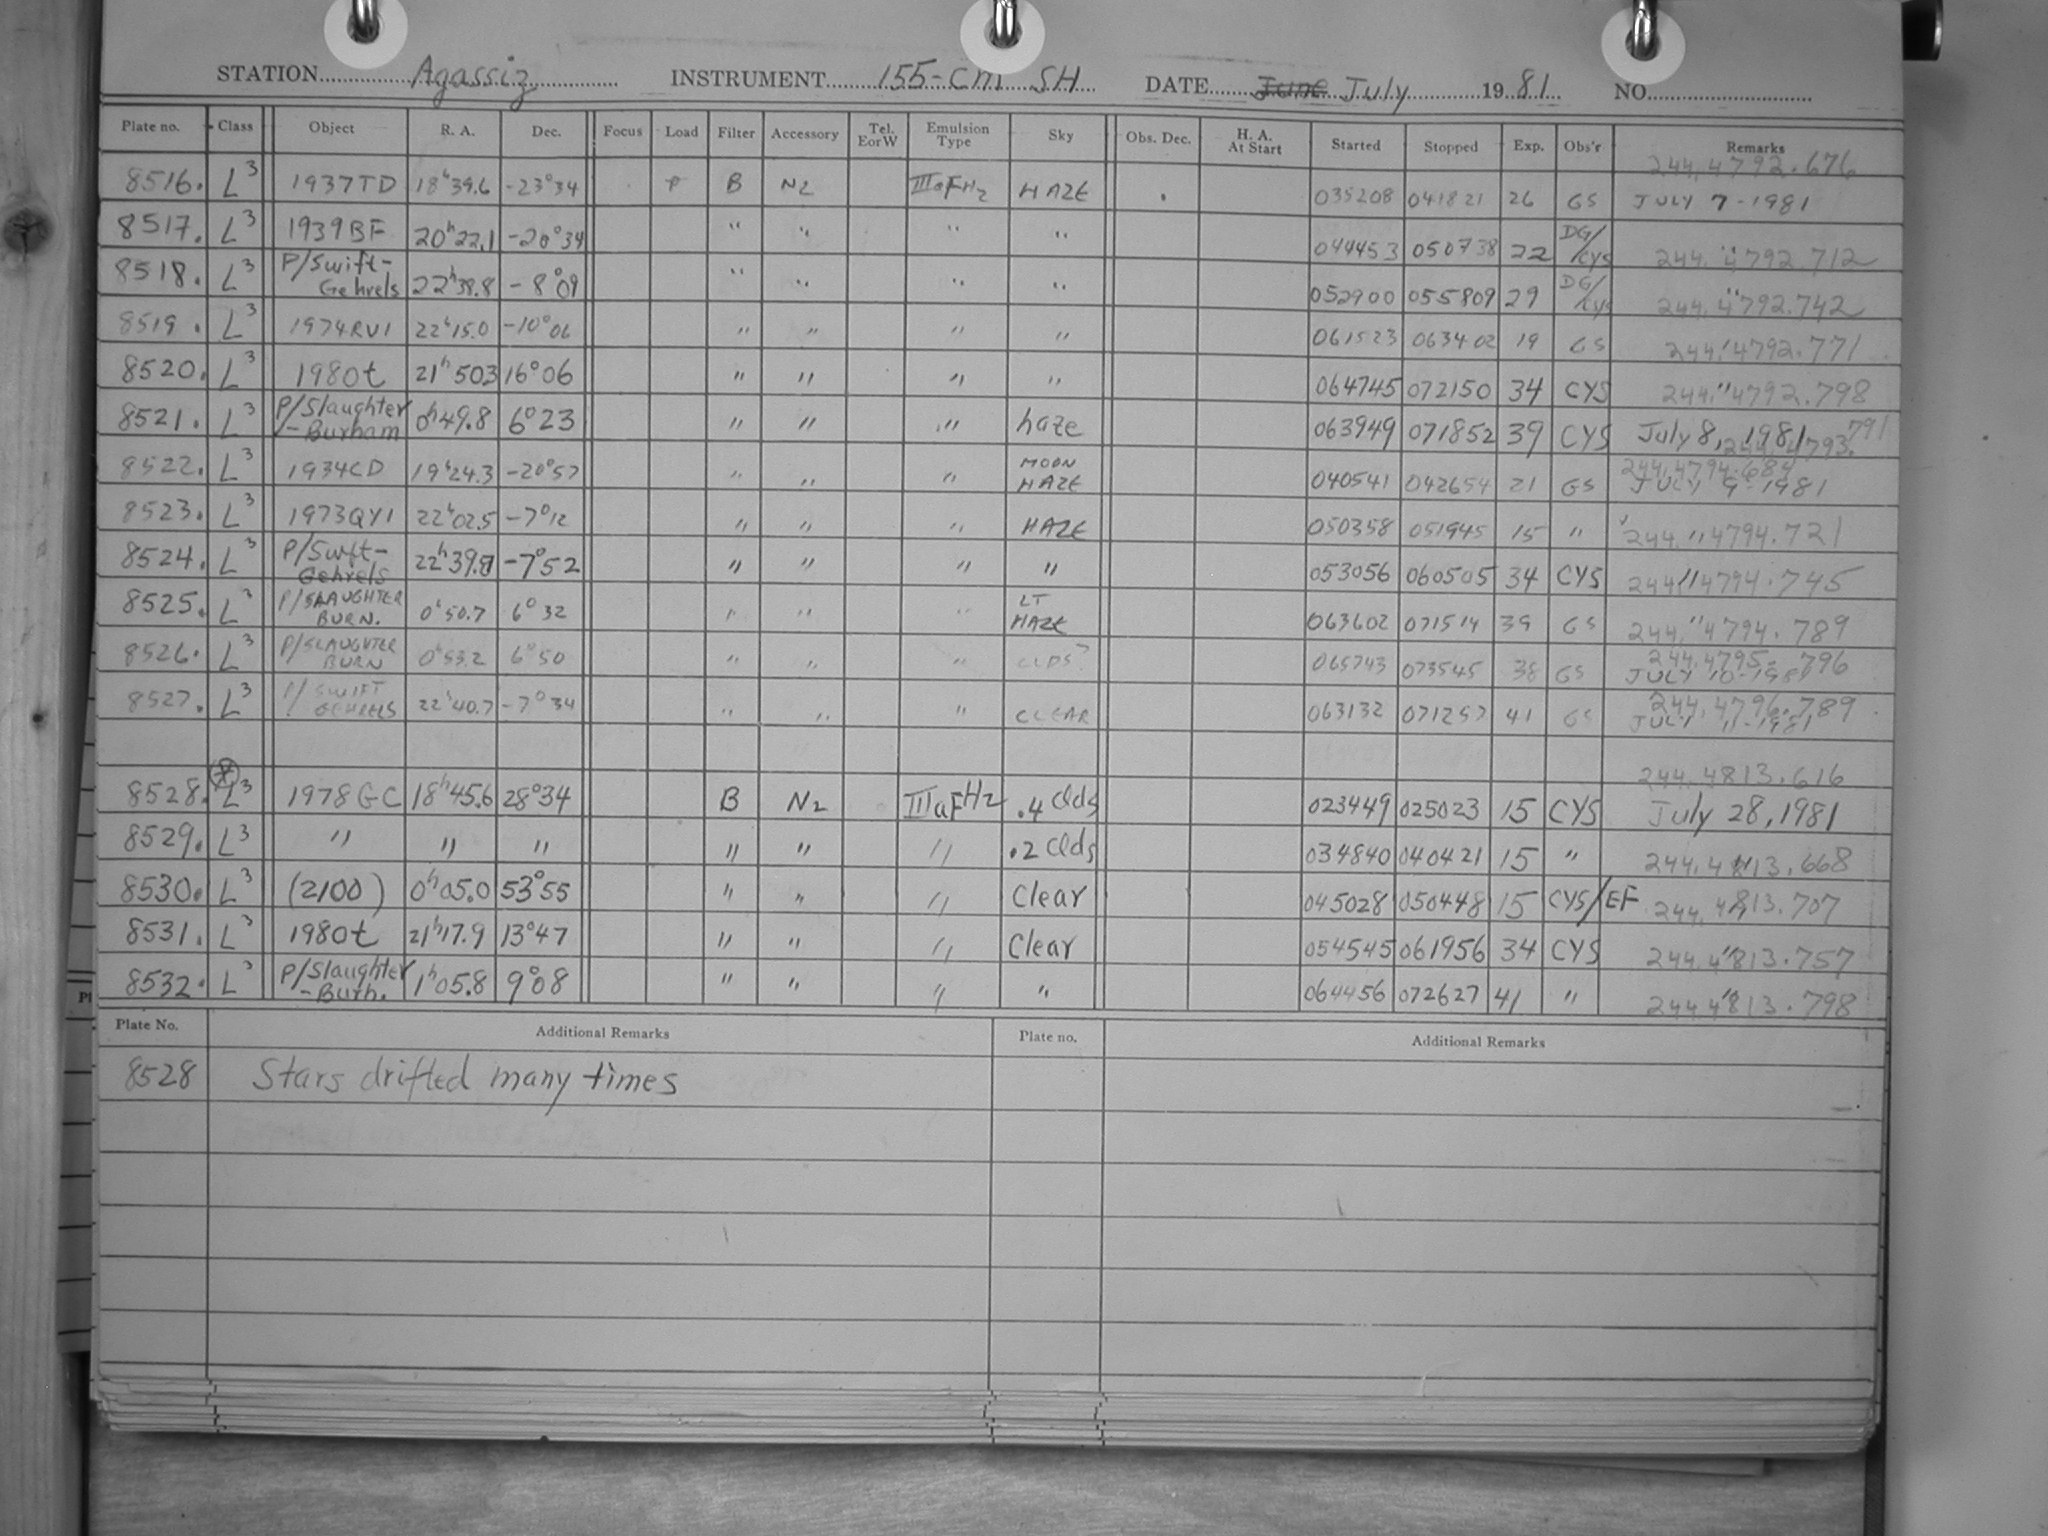 STATION Agassiz INSTRUMENT 155-cm SH DATE June July 1981 NO.
Plate no. Class Object R. A. Dec. Focus Load Filter Accessory Tel. EorW Emulsion Type Sky Obs. Dec. H. A. At Start Started Stopped Exp. Obs'r Remarks
244,4792.676
8516. L3 1937TD 18h39.6 -23°34 P B N2 IIIaFH2 HAZE 035208 041821 26 GS JULY 7-1981
8517. L3 1939BF 20h22.1 -20°34 " " " " 044453 050738 22 DG/CYS 244,4792.712
8518. L3 P/Swift-Gehrels 22h38.8 -8°09 " " " " 052900 055809 29 DG/CYS 244,4792.742
8519. L3 1974RV1 22h15.0 -10°06 " " " " 061523 063402 19 GS 244,4792.771
8520. L3 1980t 21h503 16°06 " " " " 064745 072150 34 CYS 244,4792.798
8521. L3 P/Slaughter-Burham 0h49.8 6°23 " " " haze 063949 071852 39 CYS July 8, 1981 244,4793.791
8522. L3 1934CD 19h24.3 -20°57 " " " MOON HAZE 040541 042654 21 GS 244,4794.684 JULY 9-1981
8523. L3 1973QY1 22h02.5 -7°12 " " " HAZE 050358 051945 15 " 244,4794.721
8524. L3 P/Swift-Gehrels 22h39.8 -7°52 " " " " 053056 060505 34 CYS 244,4794.745
8525. L3 P/SLAUGHTER BURN. 0h50.7 6°32 " " " LT HAZE 063602 071514 39 GS 244,4794.789
8526. L3 P/SLAUGHTER BURN 0h53.2 6°50 " " " CLDS? 065743 073545 38 GS 244,4795.796 JULY 10-1981
8527. L3 P/SWIFT GEHRELS 22h40.7 -7°34 " " " CLEAR 063132 071257 41 GS 244,4796.789 JULY 11-1981
244,4813.616
8528. * L3 1978GC 18h45.6 28°34 B N2 IIIaFH2 .4 Clds 023449 025023 15 CYS July 28, 1981
8529. L3 " " " " " " .2 Clds 034840 040421 15 " 244,4813.668
8530. L3 (2100) 0h05.0 53°55 " " " Clear 045028 050448 15 CYS/EF 244,4813.707
8531. L3 1980t 21h17.9 13°47 " " " Clear 054545 061956 34 CYS 244,4813.757
8532. L3 P/Slaughter-Burh. 1h05.8 9°08 " " " " 064456 072627 41 " 244,4813.798
Plate No. Additional Remarks Plate no. Additional Remarks
8528 Stars drifted many times